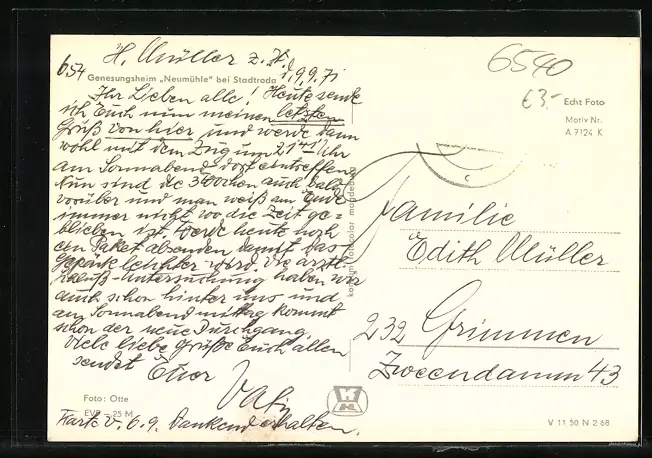 H. Müller z. Zt.
654
Genesungsheim „Neumühle" bei Stadtroda
d. 9.9.71
Ihr Lieben alle! Heute sende
ich Euch nun meinen letzten
Gruß von hier und werde dann
wohl mit dem Zug um 21 41 Uhr
am Sonnabend dort eintreffen.
Nun sind die 3 Wochen auch bald
vorüber und man weiß am Ende
immer nicht wo die Zeit ge=
blieben ist. Werde heute noch
ein Paket absenden damit das
Gepäck leichter wird. Die ärztl.
Untersuchung haben wir
auch schon hinter uns und
am Sonnabend mittag kommt
schon der neue Durchgang.
Viele liebe Grüße Euch allen
sendet Euer
Vati
Foto: Otte
EVP – 25 M
Karte v. 6.9. dankend erhalten.
6540
€3.-
Echt Foto
Motiv Nr.
A 7124 K
Familie
Edith Müller
232 Grimmen
Zweendamm 43
V 11 50 N 2 68